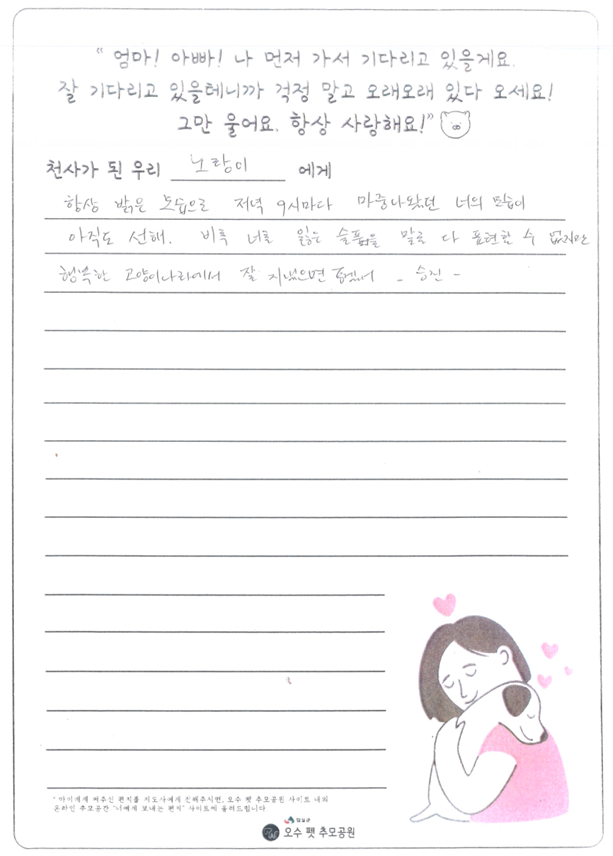 “ 엄마! 아빠! 나 먼저 가서 기다리고 있을게요.
잘 기다리고 있을테니까 걱정 말고 오래오래 있다 오세요!
그만 울어요. 항상 사랑해요!”
천사가 된 우리 노랑이 에게
항상 밝은 모습으로 저녁 9시마다 마중나왔던 너의 모습이
아직도 선해. 비록 너를 잃은 슬픔을 말로 다 표현할 수 없지만
행복한 고양이나라에서 잘 지냈으면 좋겠어 - 승진 -
* 아이에게 써주신 편지를 지도사에게 전해주시면, 오수 펫 추모공원 사이트 내의
온라인 추모공간 '너에게 보내는 편지' 사이트에 올려드립니다
임실군
오수 펫 추모공원